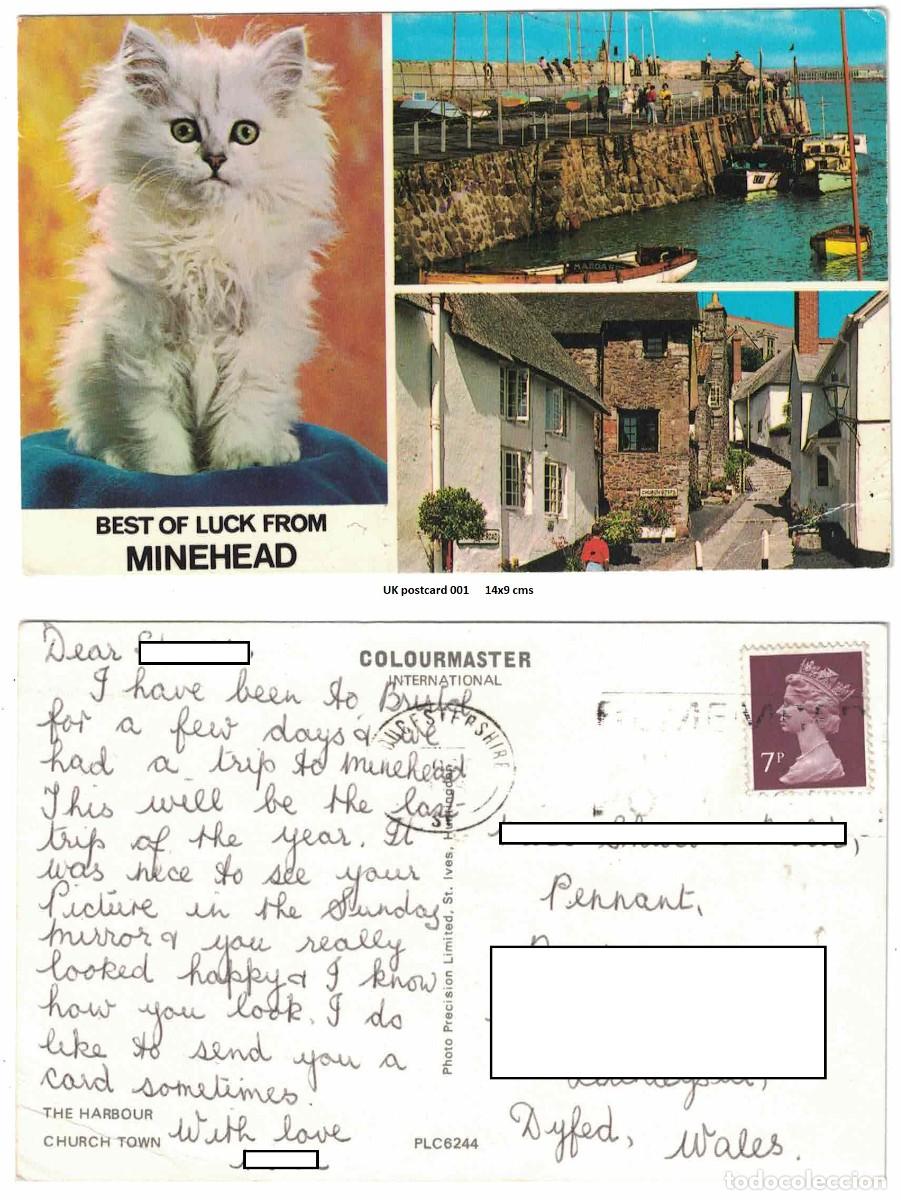 BEST OF LUCK FROM
MINEHEAD
MARGARE
CHURCH STEPS
ROAD
UK postcard 001 14x9 cms
Dear
I have been to Bristol
for a few days & we
had a trip to minehead
This will be the last
trip of the year. It
was nice to see your
Picture in the Sunday
mirror & you really
looked happy & I know
how you look. I do
like to send you a
card sometimes.
With love
THE HARBOUR
CHURCH TOWN
COLOURMASTER
INTERNATIONAL
Photo Precision Limited, St. Ives, Huntingdon
PLC6244
OUCESTERSHIRE
7P
Pennant,
Dyfed, Wales.
todocoleccion